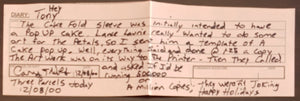 DIARY: Hey
Tony
The Cake Fold Sleeve was initially intended to have
a Pop up cake. Lance really wanted to do some
art for The Petals, so I sent him a Template of A
Cake pop up. Well, everyone said go above @ 1.25 a Copy
The Artwork was on its way to The Printer - Then They Called
and asked if I'd be
12/08/00 running 500,000
Three Parcels today A million Copies, They weren't Joking
12/08/00 Happy Holidays